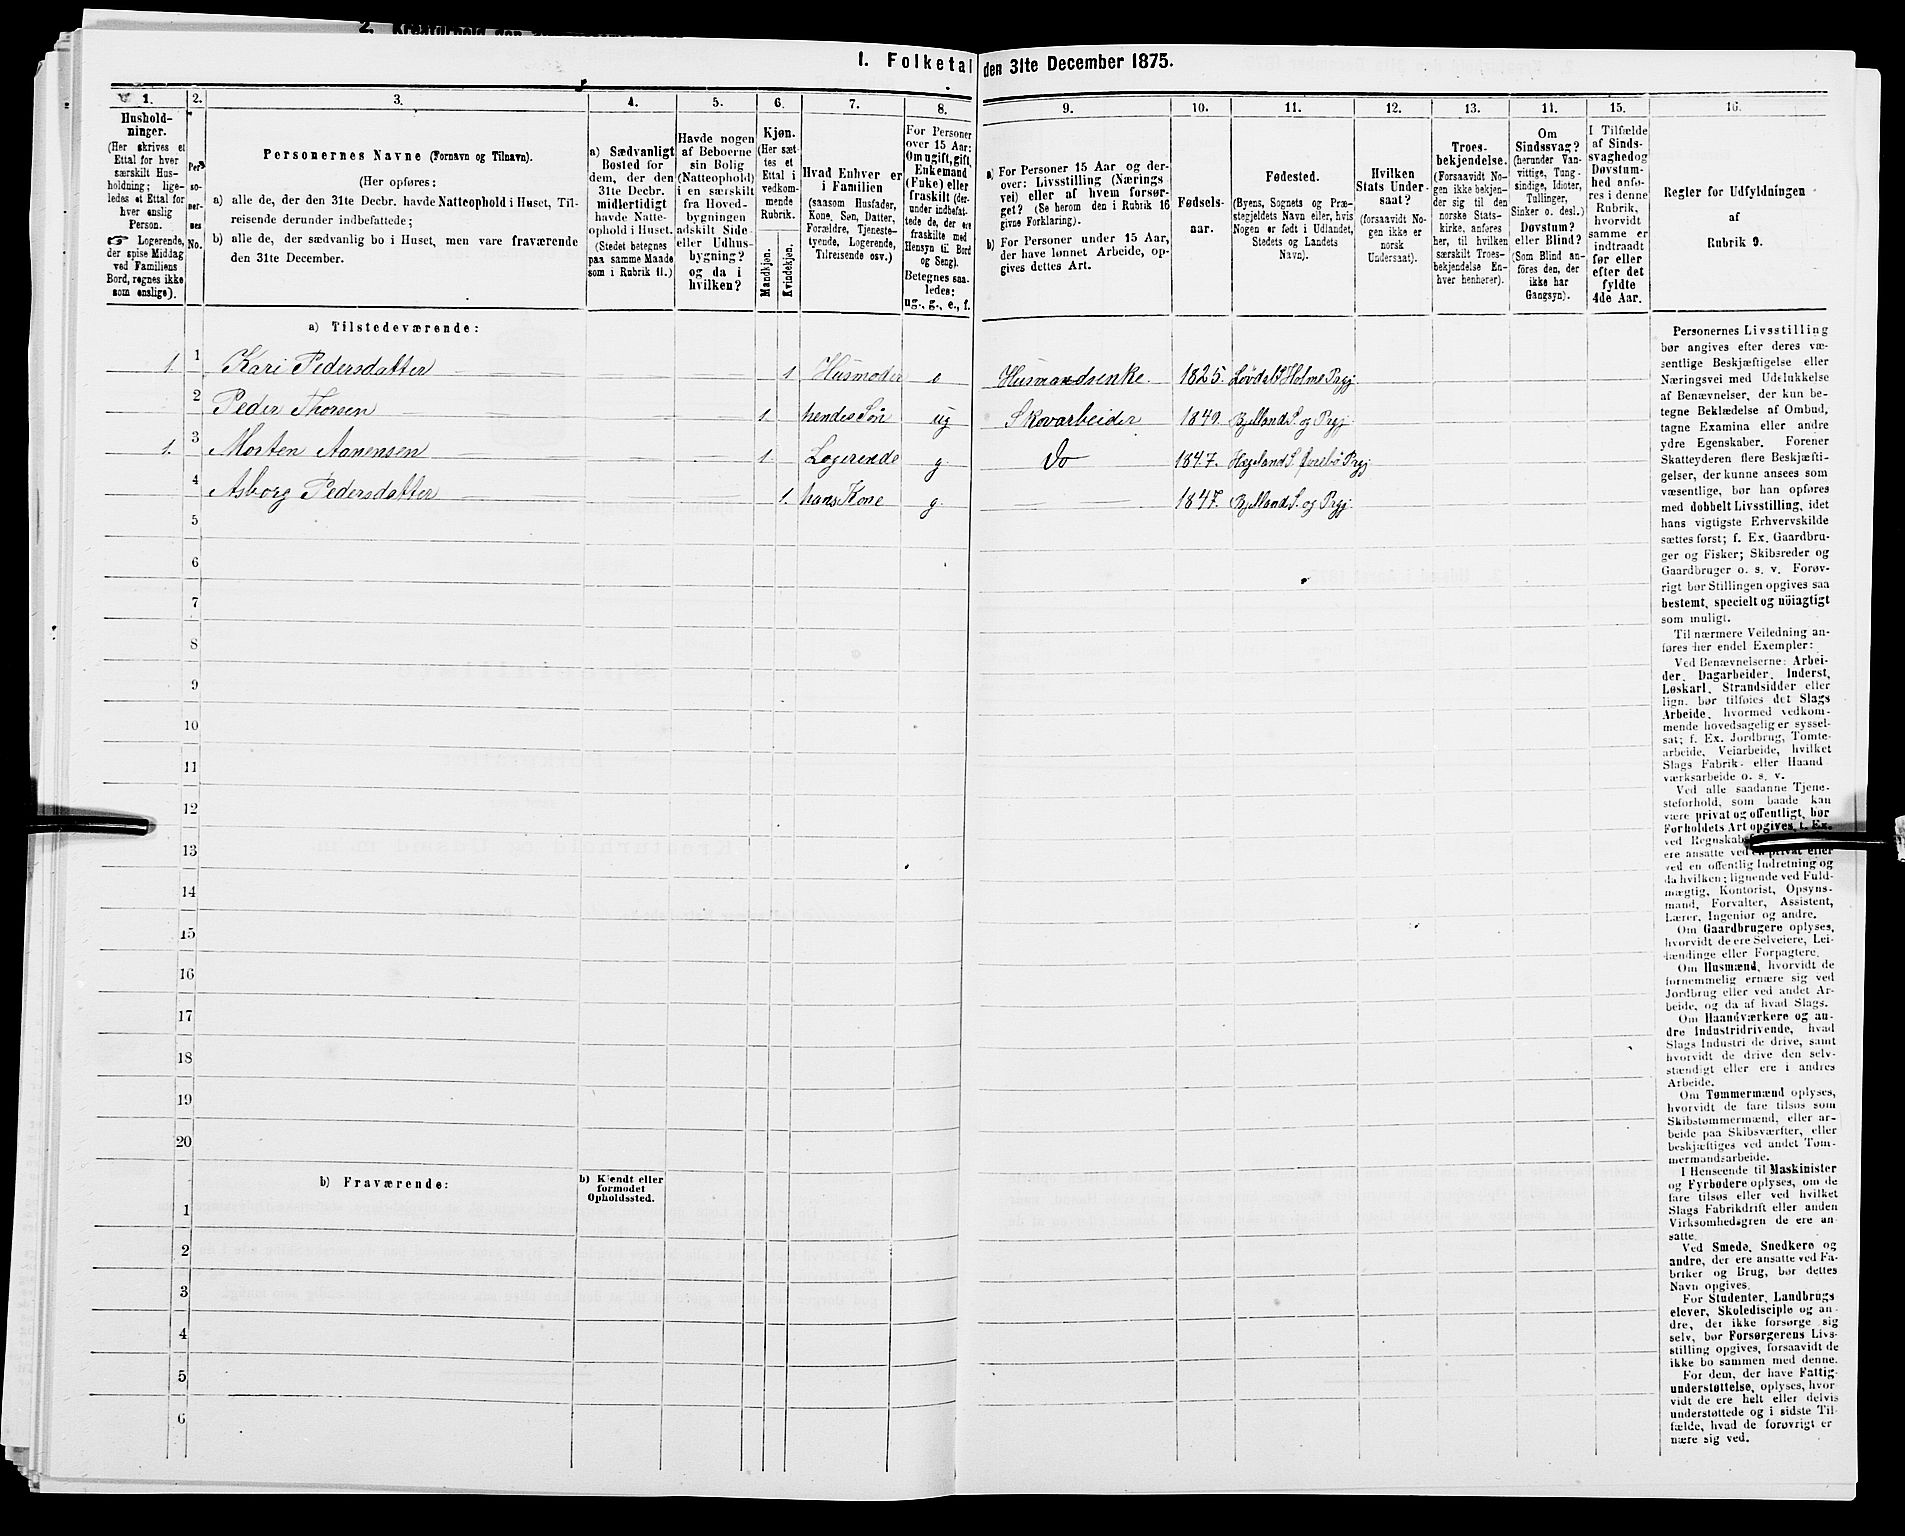 1. Folketal den 31te December 1875.
1. 2. 3. 4. 5. 6. 7. 8. 9. 10. 11. 12. 13. 11. 15. 16.
Hushold-
ninger.
(Her skrives et
Ettal for hver
særskilt Hus-
holdning; lige-
ledes et Ettal for
hver enslig
Person.
☞ Logerende,
der spise Middag
ved Familiens
Bord, regnes ikke
som enslige).
Per-
so-
ner-
nes
No.
Personernes Navne (Fornavn og Tilnavn).
(Her opføres:
a) alle de, der den 31te Decbr. havde Natteophold i Huset, Til-
reisende derunder indbefattede;
b) alle de, der sædvanlig bo i Huset, men vare fraværende
den 31te December.
a) Sædvanligt
Bosted for
dem, der den
31te Decbr.
midlertidigt
havde Natte-
ophold i Huset.
(Stedet betegnes
paa samme Maade
som i Rubrik 11.)
Havde nogen
af Beboerne
sin Bolig
(Natteophold)
i en særskilt
fra Hoved-
bygningen
adskilt Side-
eller Udhus-
bygning?
og da i
hvilken?
Kjøn.
(Her sæt-
tes et
Ettal i
vedkom-
mende
Rubrik.
Mandkjøn.
Kvindekjøn.
Hvad Enhver er
i Familien
(saasom Husfader,
Kone, Søn, Datter,
Forældre, Tjeneste-
tyende, Logerende,
Tilreisende osv.)
For Personer
over 15 Aar:
Om ugift, gift,
Enkemand
(Enke) eller
fraskilt (der-
under indbefat-
tede de, der ere
fraskilte med
Hensyn til Bord
og Seng).
Betegnes saa-
ledes:
ug., g., e., f.
a) For Personer 15 Aar og der-
over: Livsstilling (Nærings
vei) eller af hvem forsør-
get? (Se herom den i Rubrik 16
givne Forklaring).
b) For Personer under 15 Aar,
der have lønnet Arbeide, op-
gives dettes Art.
Fødsels-
aar.
Fødested.
(Byens, Sognets og Præ-
stegjeldets Navn eller, hvis
Nogen er født i Udlandet,
Stedets og Landets
Navn).
Hvilken
Stats Under-
saat?
(forsaavidt No-
gen ikke er
norsk
Undersaat).
Troes-
bekjendelse.
(Forsaavidt No-
gen ikke bekjen-
der sig til den
norske Stats-
kirke, anføres
her, til hvilken
særskilt Troes-
bekjendelse En-
hver henhører).
Om
Sindssvag?
(herunder Van-
vittige, Tung-
sindige, Idioter,
Tullinger,
Sinker o. desl.)
Døvstum?
eller Blind?
(Som Blind an-
føres den, der
ikke har
Gangsyn).
I Tilfælde
af Sinds-
svaghed og
Døvstum-
hed anfø-
res i denne
Rubrik,
hvorvidt
samme er
indtraadt
før eller
efter det
fyldte
4de Aar.
Regler for Udfyldningen
af
Rubrik 9.
a) Tilstedeværende:
1. 1 Kari Pedersdatter 1 Husmoder e Husmandsenke. 1825. Lövdal S. Holme Prgj
2 Peder Thorsen 1. hendes Sön ug Skovarbeider 1849. Bjelland S. og Prgj
1. 3 Morten Aanensen 1. Logerende g Do 1847. Hægeland S. Prgj
4 Asborg Pedersdatter 1. hans Kone g. 1847. Bjelland S. og Prgj
5
6
7
8
9
10
11
12
13
14
15
16
17
18
19
20
b) Fraværende:
b) Kjendt eller
formodet
Opholdssted.
1
2
3
4
5
6
Personernes Livsstilling
bør angives efter deres væ-
sentlige Beskjæftigelse eller
Næringsvei med Udelukkelse
af Benævnelser, der kun be-
tegne Beklædelse af Ombud,
tagne Examina eller andre
ydre Egenskaber. Forener
Skatteyderen flere Beskjæfti-
gelser, der kunne ansees som
væsentlige, bør han opføres
med dobbelt Livsstilling, idet
hans vigtigste Erhvervskilde
sættes først; f. Ex. Gaardbru-
ger og Fisker; Skibsreder og
Gaardbruger o. s. v. Forøv-
rigt bør Stillingen opgives saa
bestemt, specielt og nöiagtigt
som muligt.
Til nærmere Veiledning an-
føres her endel Exempler:
Ved Benævnelserne: Arbei-
der, Dagarbeider, Inderst,
Løskarl, Strandsidder eller
lign. bør tilføies det Slags
Arbeide, hvormed vedkom-
mende hovedsagelig er syssel-
sat; f. Ex. Jordbrug, Tomte-
arbeide, Veiarbeide, hvilket
Slags Fabrik- eller Haand
værksarbeide o. s. v.
Ved alle saadanne Tjene-
steforhold, som baade kan
være privat og offentligt, bør
Forholdets Art opgives, t. Ex.
ved Regnskabs
ere ansatte ved en privat eller
ved en offentlig Indretning og
da hvilken; lignende ved Fuld-
mægtig, Kontorist, Opsyns-
mand, Forvalter, Assistent,
Lærer, Ingeniør og andre.
Om Gaardbrugere oplyses,
hvorvidt de ere Selveiere, Lei-
lændinge eller Forpagtere.
Om Husmænd, hvorvidt de
fornemmelig ernære sig ved
Jordbrug eller ved andet Ar-
beide, og da af hvad Slags.
Om Haandværkere og an-
dre Industridrivende, hvad
Slags Industri de drive, samt
hvorvidt de drive den selv-
stændigt eller ere i andres
Arbeide.
Om Tømmermænd oplyses,
hvorvidt de fare tilsøs som
Skibstømmermænd, eller ar-
beide paa Skibsværfter, eller
beskjæftiges ved andet Tøm-
mermandsarbeide.
I Henseende til Maskinister
og Fyrbødere oplyses, om de
fare tilsøs eller ved hvilket
Slags Fabrikdrift eller anden
Virksomhedsgren de ere an-
satte.
Ved Smede, Snedkere og
andre, der ere ansatte ved Fa-
briker og Brug, bør dettes
Navn opgives.
For Studenter, Landbrugs
elever, Skoledisciple og an-
dre, der ikke forsørge sig
selv, bør Forsørgerens Livs-
stilling opgives, forsaavidt de
ikke bo sammen med denne.
For dem, der have Fattig-
understøttelse, oplyses, hvor-
vidt de ere helt eller delvis
understøttede og i sidste Til-
fælde, hvad de forøvrigt er
nære sig ved.